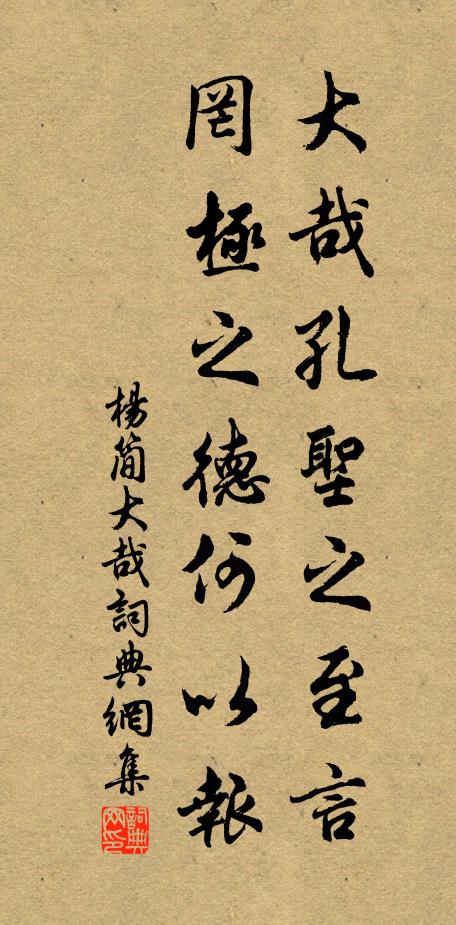 大哉孔聖之至言
罔極之德何以報
楊簡大哉詞典網集
詞典網印